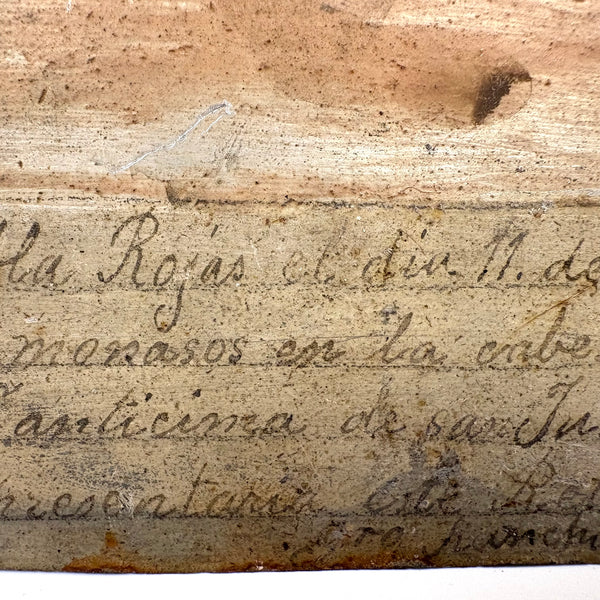 lla Rojas el dia 11. de
monasos en la cabe
Santicima de san Ju
presentaria este Ret
gro